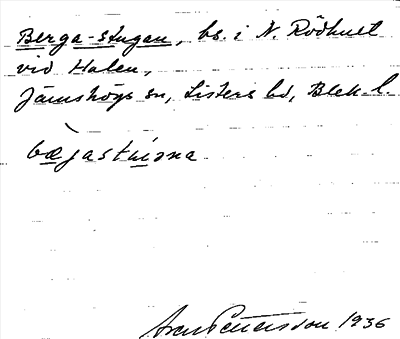 Berga-stugan, bs. i N. Rödhult
vid Halen,
Jämshögs sn, Listers hd, Blek. l.
Pettersson 1936